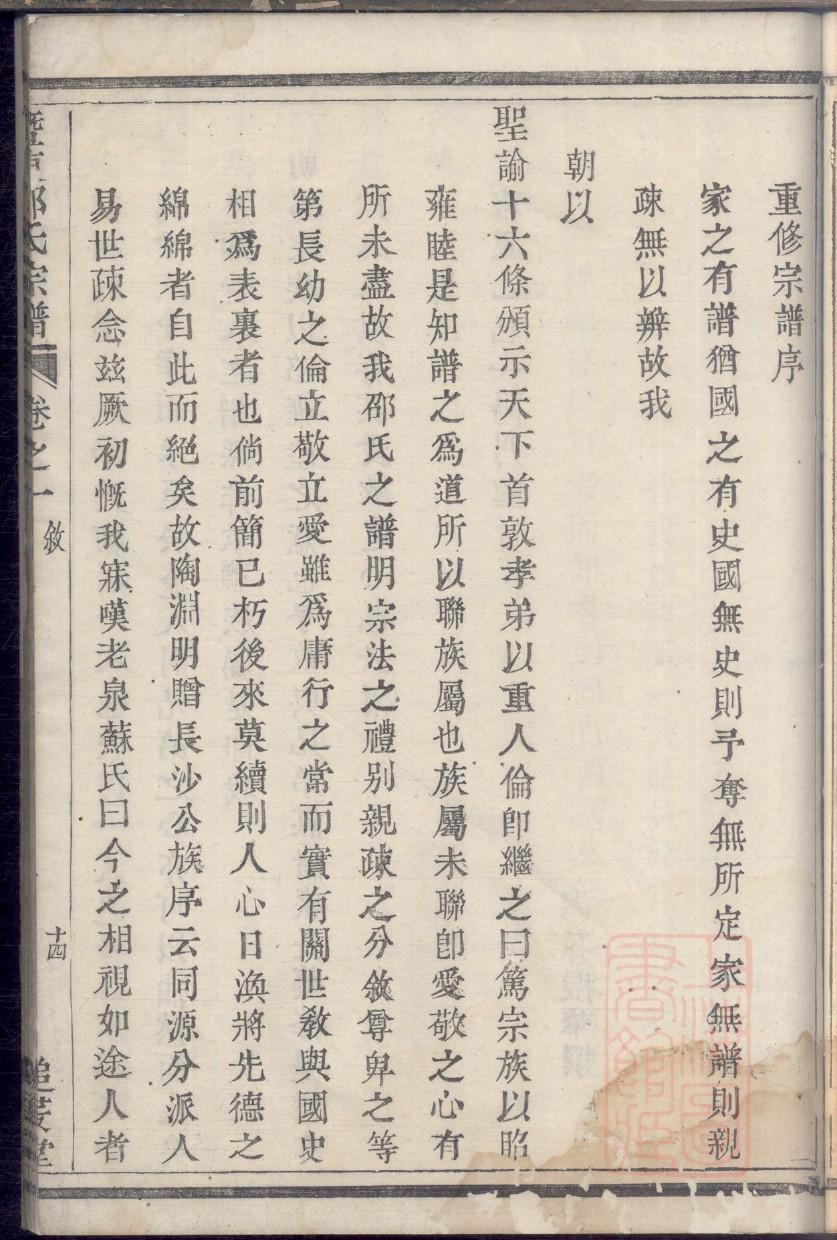 重修宗譜序
家之有譜猶國之有史國無史則予奪無所定家無譜則親
疎無以辨故我
朝以
聖諭十六條頒示天下首敦孝弟以重人倫卽繼之曰篤宗族以昭
雍睦是知譜之爲道所以聯族屬也族屬未聯卽愛敬之心有
所未盡故我邵氏之譜明宗法之禮别親疎之分敘尊卑之等
第長幼之倫立敬立愛雖爲庸行之常而實有關世敎與國史
相爲表裏者也倘前簡已朽後來莫續則人心日渙將先德之
綿綿者自此而絕矣故陶淵明贈長沙公族序云同源分派人
易世疎念兹厥初慨我寐嘆老泉蘇氏曰今之相視如途人者
邵氏宗譜 卷之一 敘 十四